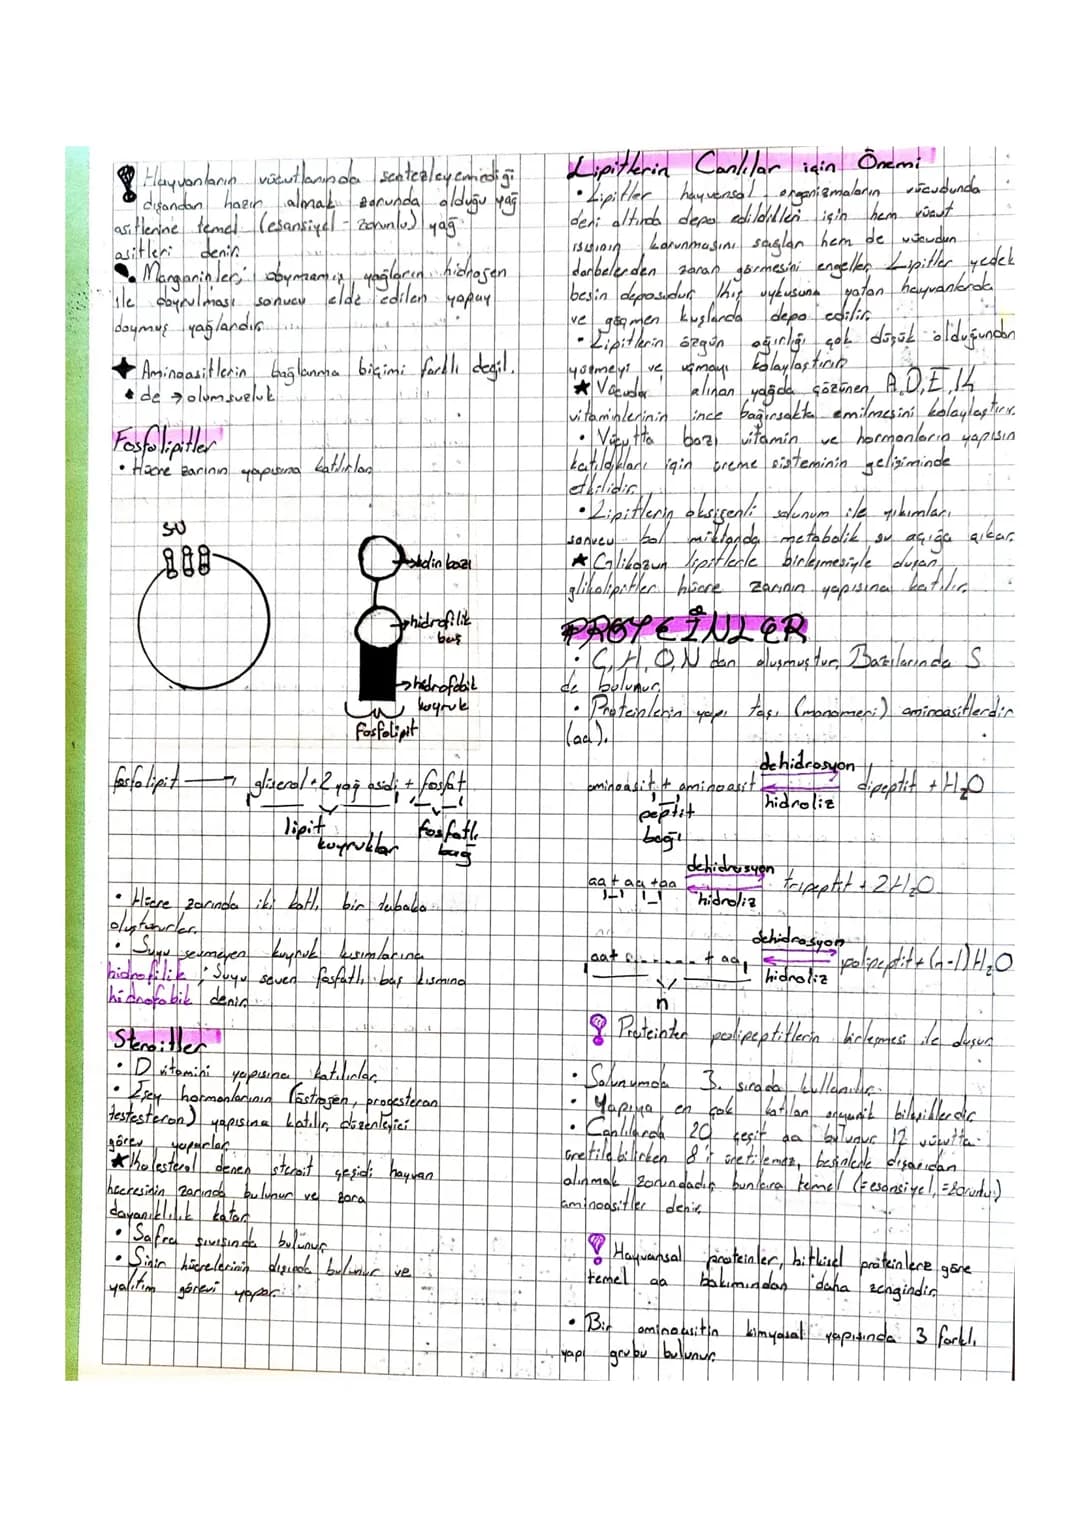 Hayvanların vücutlarında sentezleyemediği
dışarıdan hazır almak zorunda olduğu yağ
asitlerine temel (esansiyel - zorunlu) yağ
asitleri denir.
Margarinler; doymamış yağların hidrojen
ile doyrulması sonucu elde edilen yapay
doymuş yağlandır.
Aminoasitlerin bağlanma biçimi farklı değil.
de → olumsuzluk
Fosfolipitler
• Hücre zarının yapısına katılırlar.
su
hidrofilik
baş
→hidrofobik
kuyruk
Fosfolipit
fosfolipit → gliserol + 2 yağ asidi + fosfat
lipit
kuyruklar
fosfatlı
baş
• Hücre zarında iki katlı bir tabaka
oluştururlar.
• Suyu sevmeyen kuyruk kısımlarına
hidrofilik ; Suyu seven fosfatlı baş kısmına
hidrofobik denir.
Steroitler
• D vitamini yapısına katılırlar.
• Eşey hormonlarının (östrojen, progesteron
testesteron) yapısına katılır, düzenleyici
görev yaparlar.
★ Kolesterol denen steroit çeşidi hayvan
hücresinin zarında bulunur ve zara
dayanıklılık katar.
• Safra sıvısında bulunur.
• Sinir hücrelerinin dışında bulunur ve
yalıtım görevi yapar.
Lipitlerin Canlılar için Önemi
• Lipitler hayvansal organizmaların vücudunda
deri altında depo edildikleri için hem vücut
ısısının korunmasını sağlar hem de vücudun
darbelerden zarar görmesini engeller. Lipitler yedek
besin deposudur. Kış uykusuna yatan hayvanlarda
ve göçmen kuşlarda depo edilir.
• Lipitlerin özgün ağırlığı çok düşük olduğundan
yüzmeyi ve uçmayı kolaylaştırır.
★ Vücuda alınan yağda çözünen A,D,E,K
vitaminlerinin ince bağırsakta emilmesini kolaylaştırır.
• Vücutta bazı vitamin ve hormonların yapısın
katıldıkları için üreme sisteminin gelişiminde
etkilidir.
• Lipitlerin oksijenli solunum ile yıkımları
sonucu bol miktarda metabolik su açığa çıkar.
★ Glikozun lipitlerle birleşmesiyle oluşan
glikolipitler hücre zarının yapısına katılır.
PROTEİNLER
• C, H, O, N dan oluşmuştur. Bazılarında S
de bulunur.
• Proteinlerin yapı taşı (monomeri) aminoasitlerdir
(aa).
aminoasit + aminoasit dehidrosyon hidroliz dipeptit + H₂O
peptit
bağı
aa + aa + aa dehidrosyon hidroliz tripeptit + 2H₂O
aa + ...... + aa dehidrosyon hidroliz polipeptit + (n-1) H₂O
n
Proteinler polipeptitlerin birleşmesi ile oluşur
• Solunumda 3. sırada kullanılır.
• Yapıya en çok katılan organik bileşiklerdir.
• Canlılarda 20 çeşit aa bulunur 12 vücutta
üretilebilirken 8'i üretilemez, besinlerle dışarıdan
alınmak zorundadır bunlara temel (=esansiyel,=zorunlu)
aminoasitler denir.
Hayvansal proteinler, bitkisel proteinlere göre
temel aa bakımından daha zengindir.
• Bir aminoasitin kimyasal yapısında 3 farklı
yapı grubu bulunur.